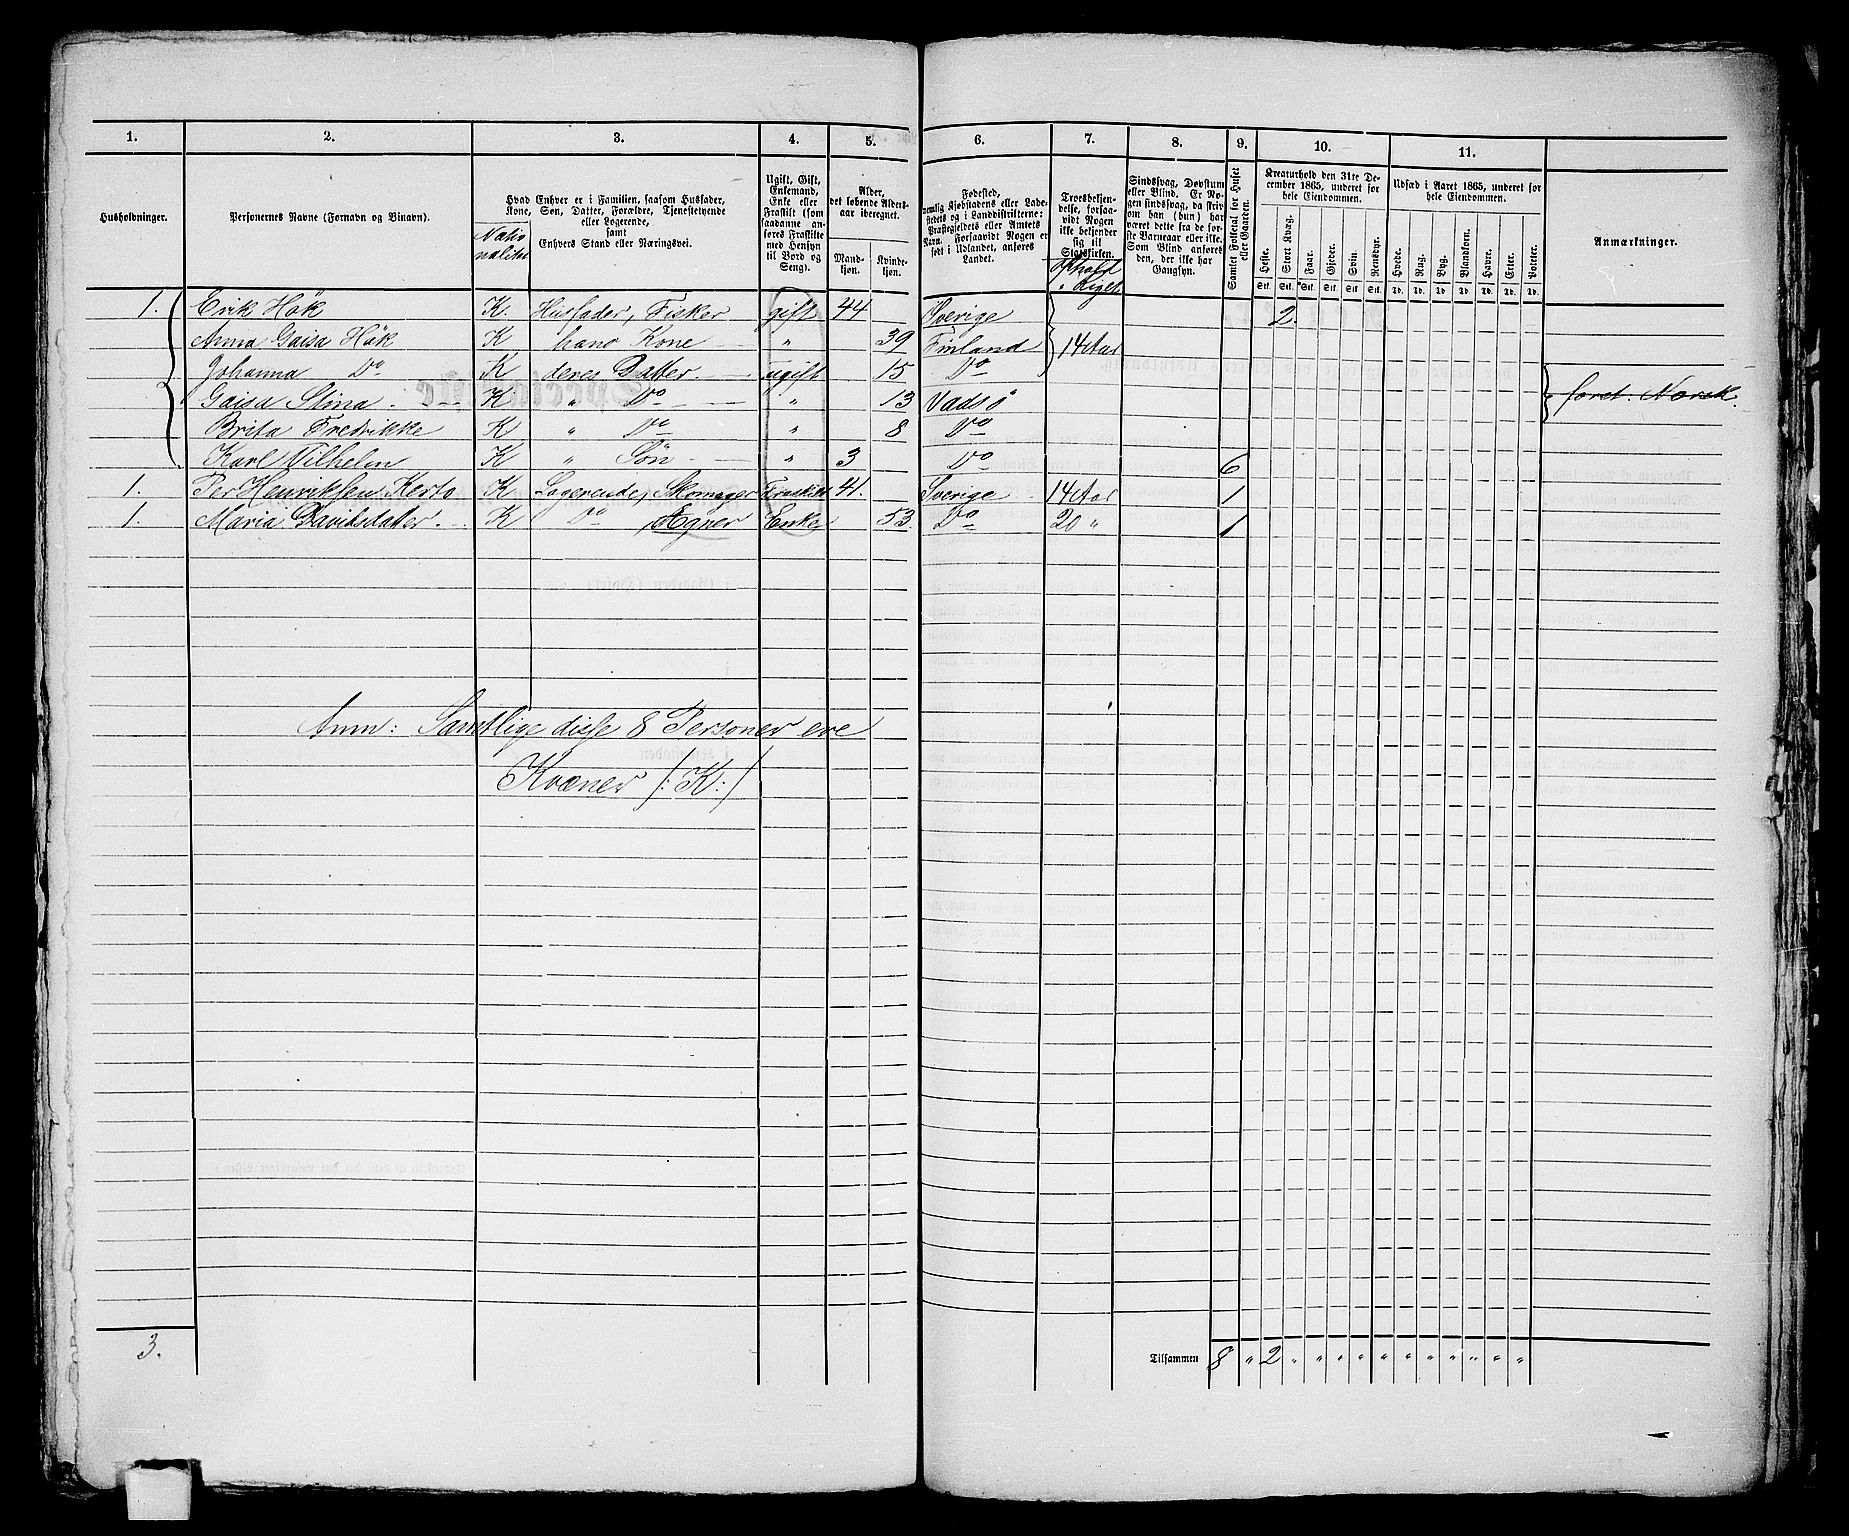 1. 2. 3. 4. 5. 6. 7. 8. 9. 10. 11.
Husholdninger.
Personernes Navne (Fornavn og Binavn).
Hvad Enhver er i Familien, saasom Husfader,
Kone, Søn, Datter, Forældre, Tjenestetyende
eller Logerende,
samt
Enhvers Stand eller Næringsvei.
Natio-
nalitet
Ugift, Gift,
Enkemand,
Enke eller
Fraskilt (som
saadanne an-
føres Fraskilte
med Hensyn
til Bord og
Seng).
Alder,
det løbende Alders-
aar iberegnet.
Mand-
kjøn.
Kvinde-
kjøn.
Fødested,
nemlig Kjøbstadens eller Lade-
stedets og i Landdistrikterne:
Præstegjeldets eller Amtets
Navn. Forsaavidt Nogen er
født i Udlandet, anføres
Landet.
Troesbekjen-
delse, forsaa-
vidt Nogen
ikke bekjender
sig til
Statskirken.
Ophold
i Riget
Sindssvag, Døvstum
eller Blind. Er No-
gen sindssvag, da skriv
om han (hun) har
været dette fra de før-
ste Barneaar eller ikke.
Som Blind anføres
den, der ikke har
Gangsyn.
Samlet Folketal for Huset
eller Gaarden.
Kreaturhold den 31te De-
cember 1865, underet for
hele Eiendommen.
Heste. Stort Kvæg. Faar. Gjeder. Svin. Rensdyr.
Stk. Stk. Stk. Stk. Stk. Stk.
Udsæd i Aaret 1865, underet for
hele Eiendommen.
Hvede. Rug. Byg. Blandkorn. Havre. Erter. Poteter.
Td. Td. Td. Td. Td. Td. Td.
Anmærkninger.
1. Erik Hök K. Husfader, Fisker gift 44 Sverige 2.
Anna Gaisa Hök K hans Kone " 39 Finland 14 Aar
Johanna Do K deres Datter. ugift 15 Do
Gaisa Stina K " Do " 13 Vadsø foret. Norsk.
Brita Fredrikke K " Do " 8 Do
Karl Vilhelm K " Søn " 3 Do 6
1. Per Henriksen Kerto K Logerende, Skomager Fraskilt 41. Sverige 14 Aar 1
1. Maria Davidsdatter K Do Enke 53. Do 20 " 1
Anm: Samtlige disse 8 Personer ere
Kvæner /: K :/
3.
Tilsammen 8 " 2 " " " " " " " " " " "